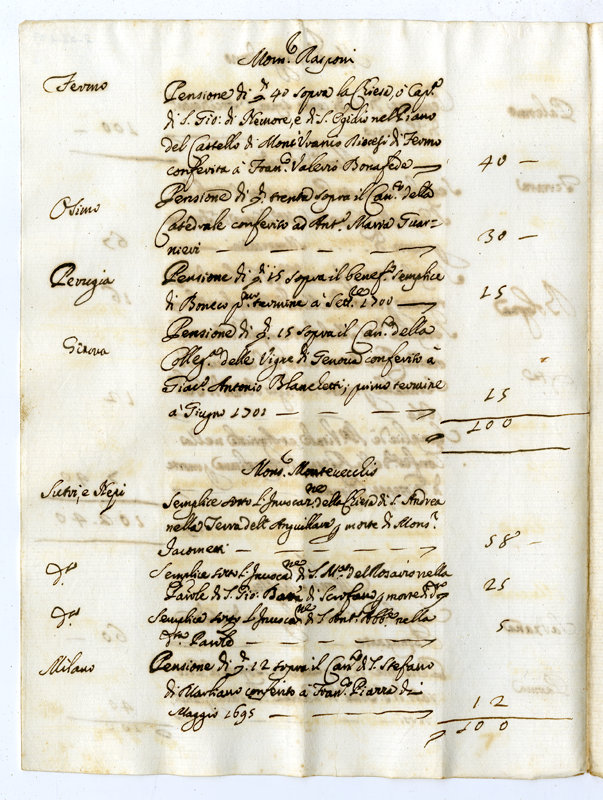 Mons.r Rasponi
Fermo Pensione di ∇ 40 sopra la Chiesa, ò Cap.a
di S. Gio: di Nemore, e di S. Egidio nel Piano
del Castello di Mont'Vranio Diocesi di Fermo
conferita à Fran.co Valerio Bonafede — 40 —
Osimo Pensione di ∇ trenta sopra il Can.to della
Catedrale conferito ad Ant.o Maria Guar=
nieri — — — — — 30 —
Perugia Pensione di ∇ 15 sopra il benef.o semplice
di Boneco p.mo termine à Sett.re 1700 — 15
Genova Pensione di ∇. 15 sopra il Can.to della
Colleg.ta delle Vigne di Genova conferito à
Giac.o Antonio Blanchetti; primo termine
à Giugno 1701 — — — — 15
100
Mons.r Montevecchio
Sutri, e Nepi Semplice sotto l'Invocaz.ne della Chiesa di S. Andrea
nella Terra dell'Anguillara p morte di Mons.r
Jacometti — — — — — 58 —
D.a Semplice sotto l'Invocaz.ne di S. M.a del Rosario nella
Parole di S. Gio: Batta di Scrofano p morte di d.o 25
D.a Semplice sotto l'Invocaz.ne di S. Ant.o Abb.e nella
d.a Parole — — — — 5
Milano Pensione di ∇. 12 sopra il Can.to di S. Stefano
di Marliano conferito à Fran.co Piazza di
Maggio 1695 — — — — 12
100